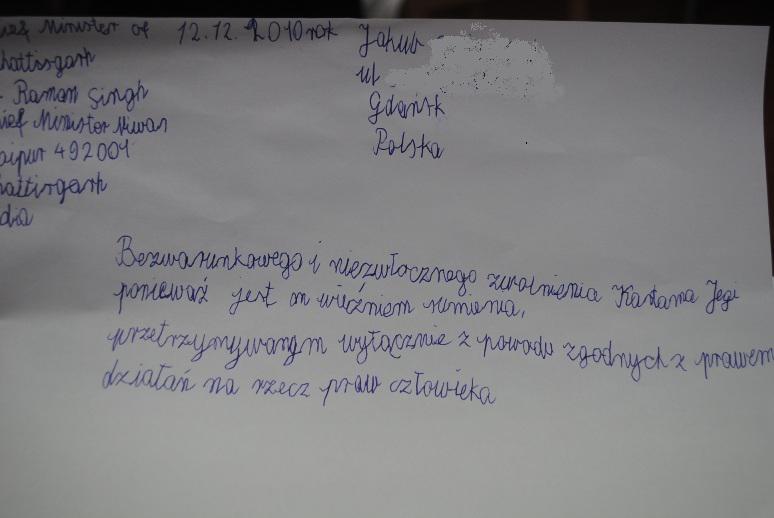 ief Minister of
hattisgarh
- Raman Singh
ief Minister Niwas
aipur 492001
hattisgarh
dia
12.12.2010 rok
Jakub
ul
Gdańsk
Polska
Bezwarunkowego i niezwłocznego zwolnienia Kartama Jogi
ponieważ jest on więźniem sumienia,
przetrzymywanym wyłącznie z powodu zgodnych z prawem
działań na rzecz praw człowieka